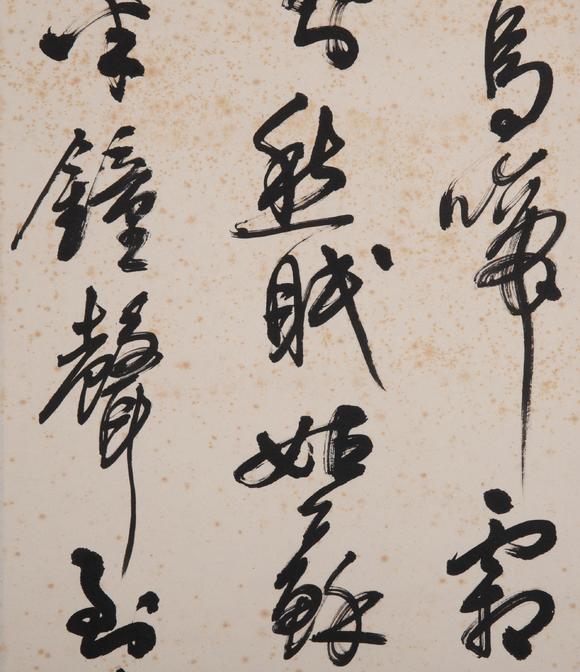 烏啼霜
愁眠姑蘇
半鐘聲到